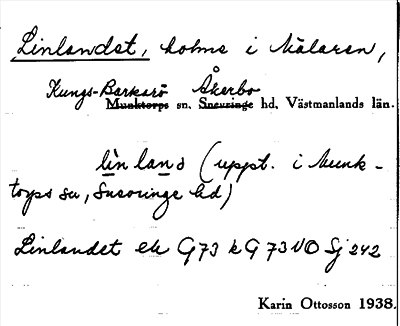 Linlandet, holme i Mälaren,
Kungs-Barkarö Åkerbo
Munktorps sn. Snevringe hd, Västmanlands län.
lìn lan d (uppt. i Munk-
torps sn, Snevringe hd)
Linlandet ek G73 k G73 NO Sj 242
Karin Ottosson 1938.